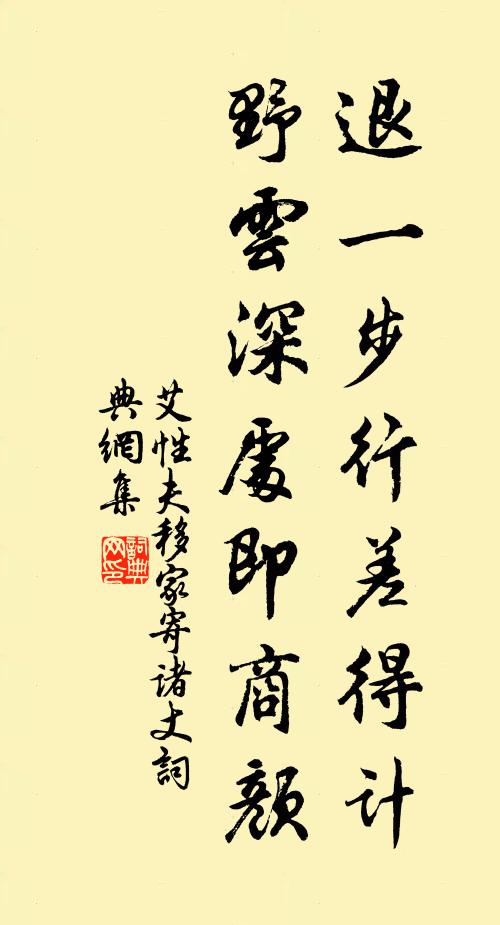 退一步行差得計
野雲深處即商顏
艾性夫移家寄诸丈詞
典網集
詞典
网印